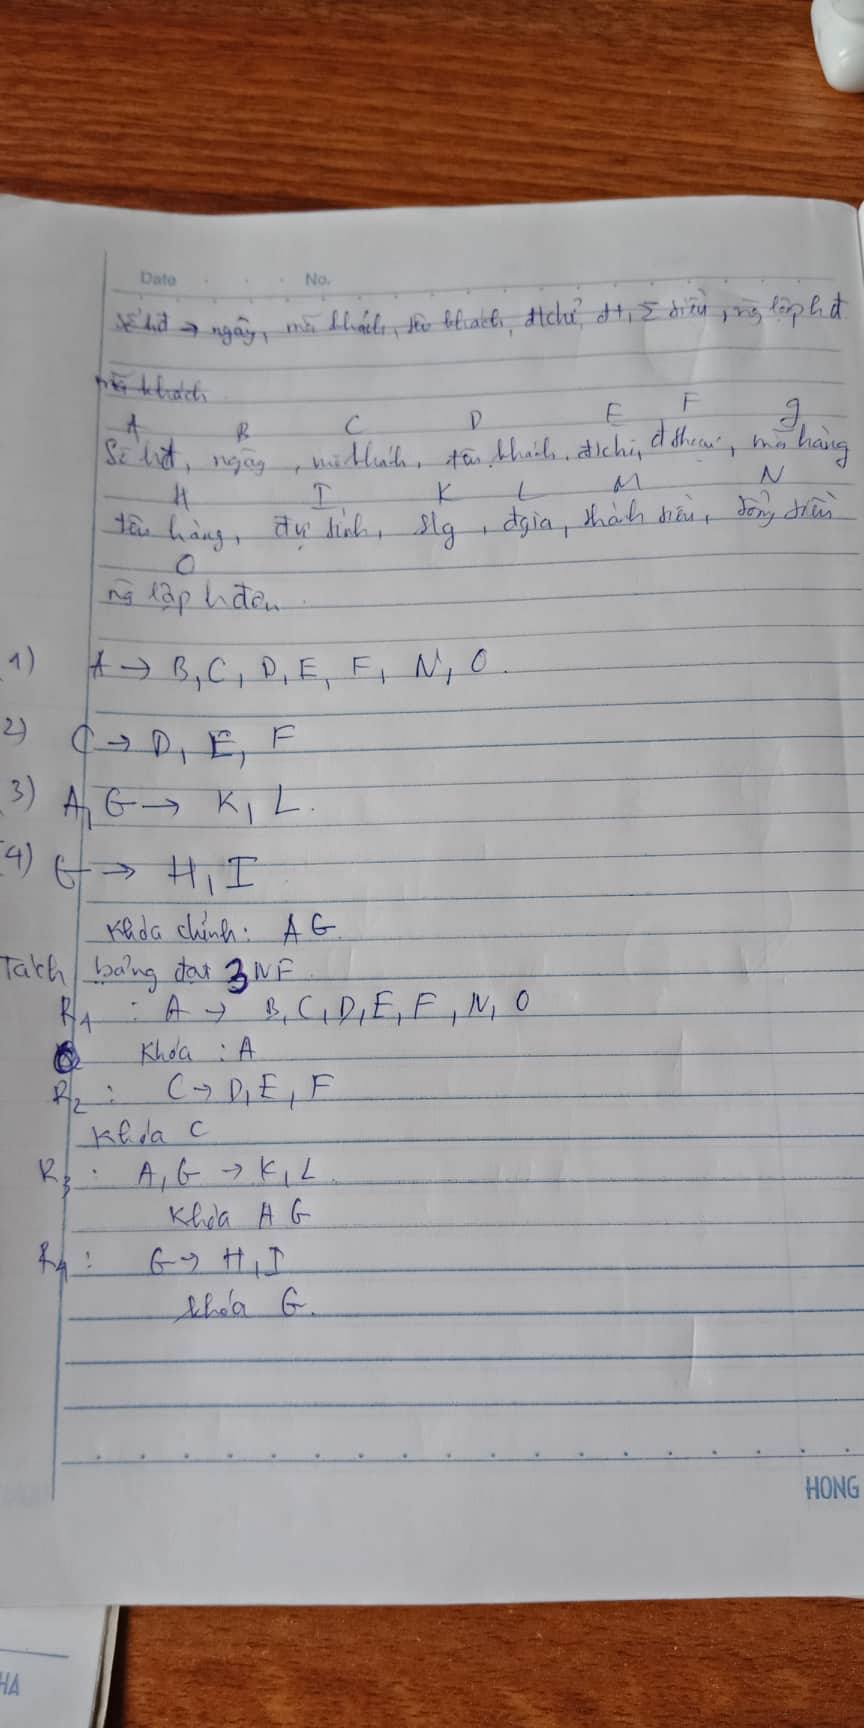 Date No.
Số hđ → ngày, mã khách, tên khách, đ/chỉ, đt, Σ tiền, ng lập hđ
mã khách
A B C D E F g
Số hđ, ngày, mã khách, tên khách, đ/chỉ, đ thoại, mã hàng
H I K L M N
tên hàng, đv tính, slg, đgia, thành tiền, tổng tiền
O
ng lập h đơn.
1) A → B, C, D, E, F, N, O.
2) C → D, E, F
3) A, G → K, L.
4) G → H, I
Khóa chính: A G.
Tách bảng đạt 3NF
R1 : A → B, C, D, E, F, N, O
Khóa : A
R2 : C → D, E, F
Khóa C
R3 : A, G → K, L.
Khóa A G
R4 : G → H, I
Khóa G.
HONG
HA